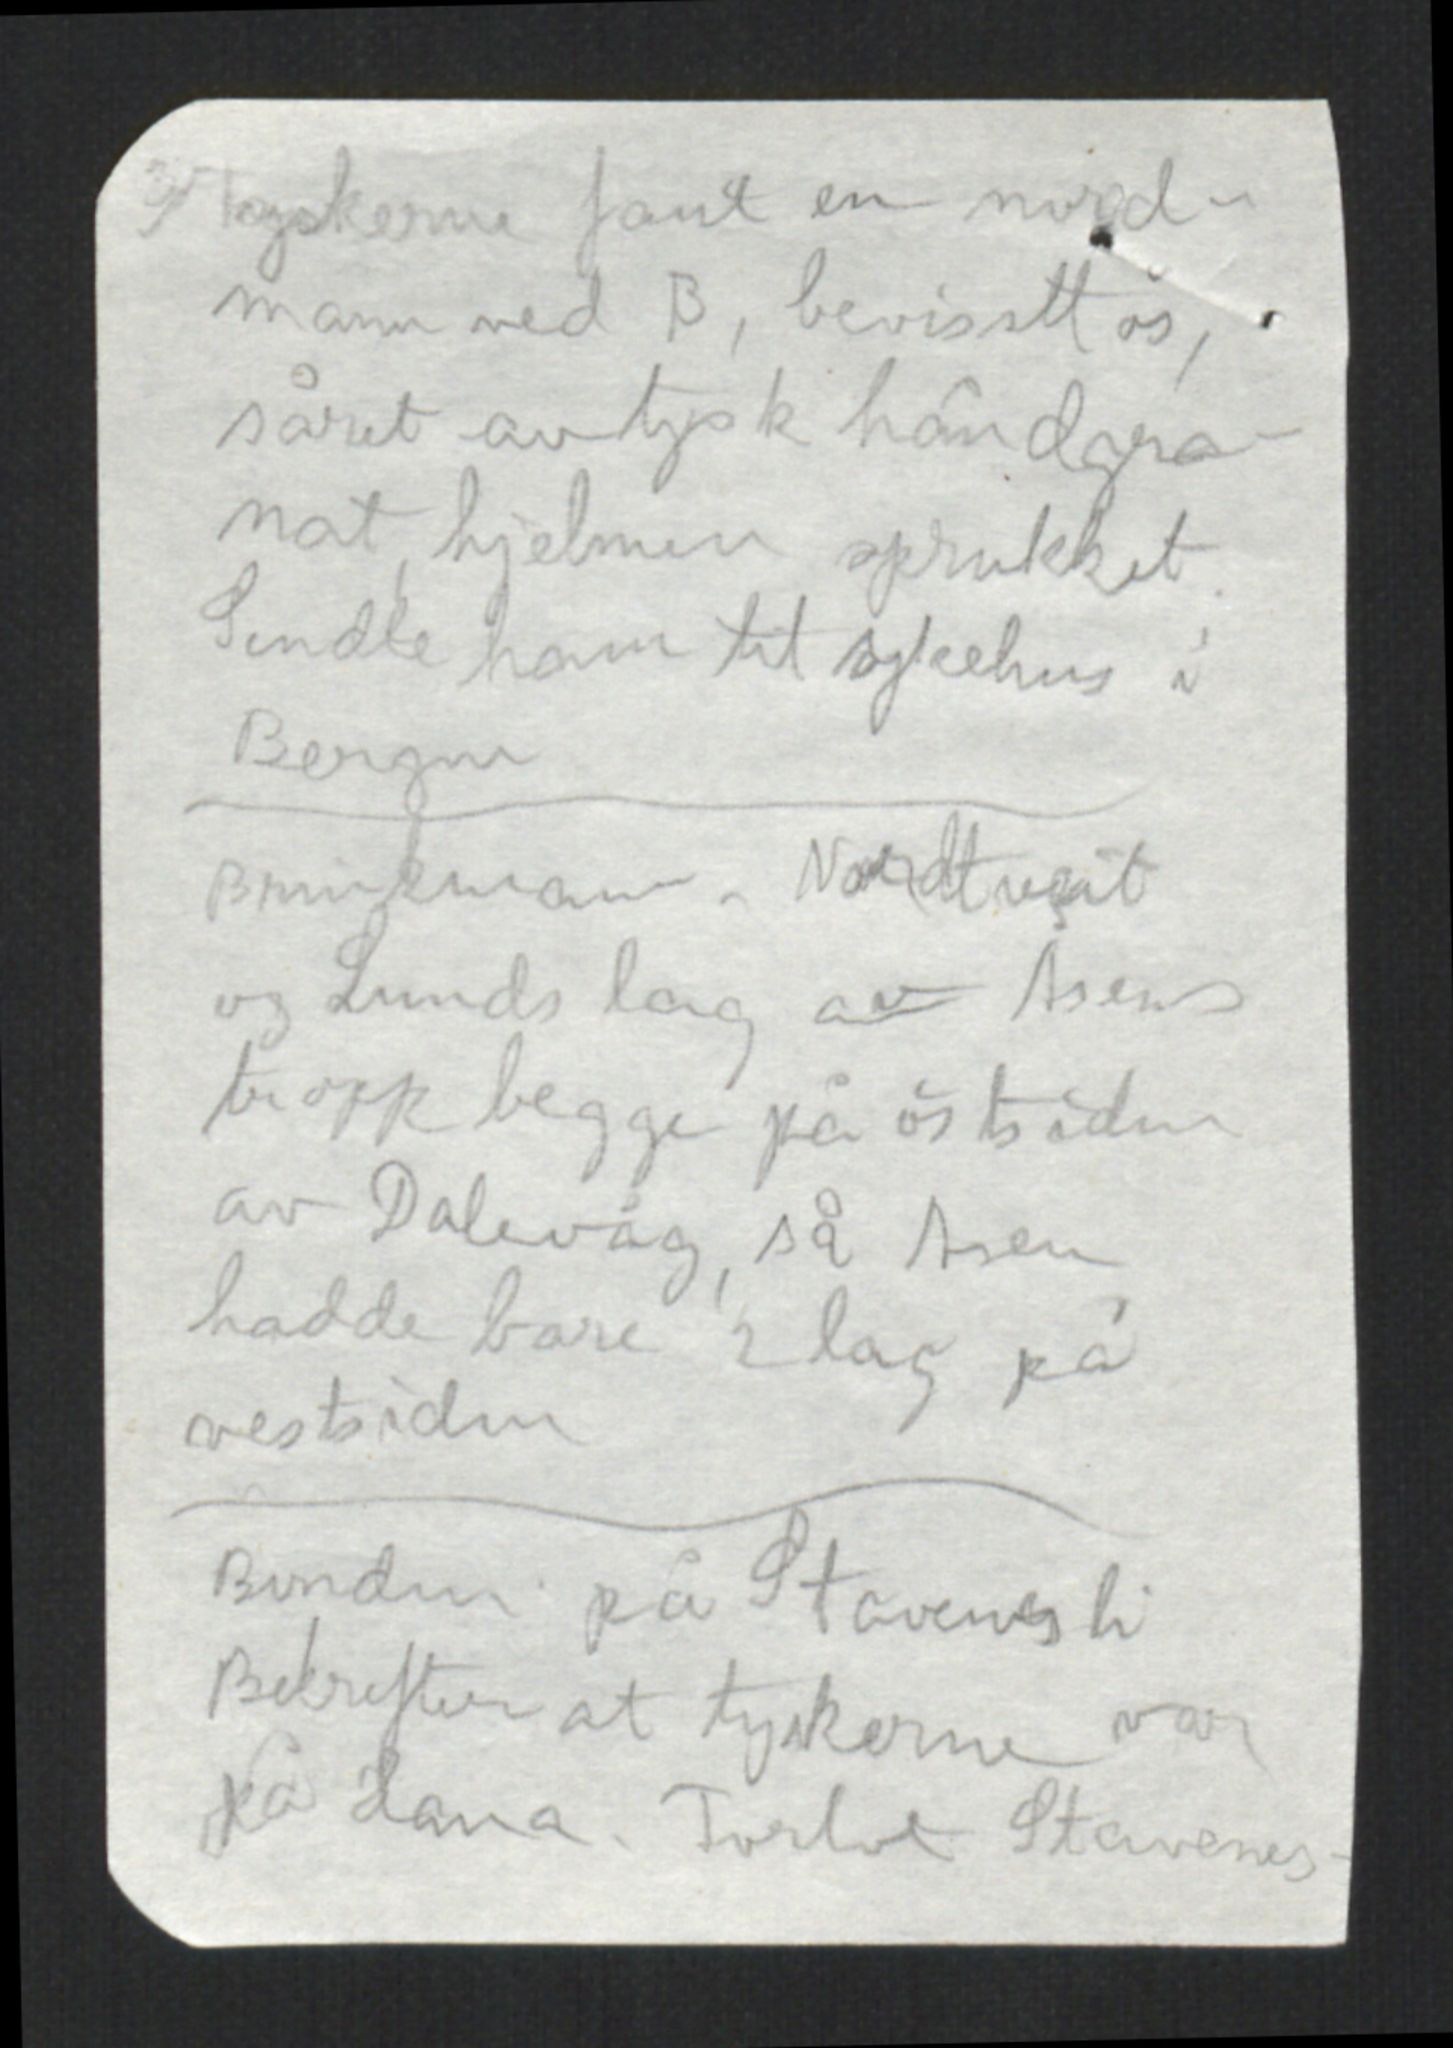 Tyskerne fant en nord-
mann ved B, bevisstlös,
såret av tysk håndgra-
nat, hjelmen sprukket.
Sendte ham til sykehus i
Bergen
Brinkmann - Nordtveit
og Lunds lag av Åsens
tropp begge på östsiden
av Dalevåg, så Åsen
hadde bare 2 lag på
vestsiden
Bonden på Stavenesli
Bekrefter at tyskerne var
på Hana. Torlot Stavenes-